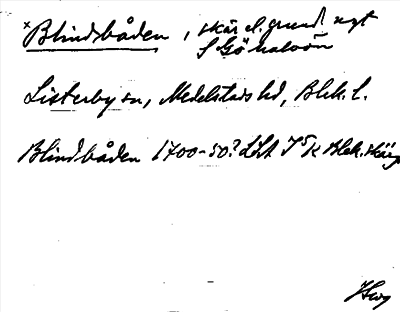 ˣBlindbåden, skär el. grund ngt
S Gö halvön
Listerby sn, Medelstads hd, Blek. l.
Blindbåden 1700-50? Löst Blek. skärg